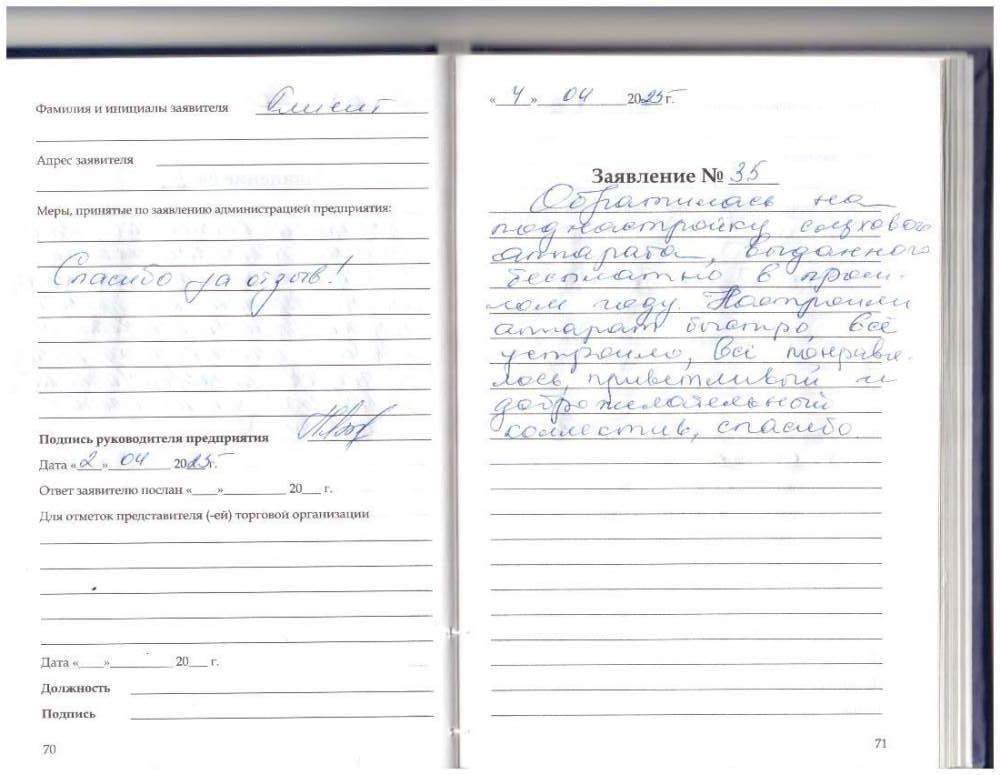 Фамилия и инициалы заявителя
Адрес заявителя
Меры, принятые по заявлению администрацией предприятия:
Спасибо за отзыв!
Подпись руководителя предприятия
Дата «2» 04 2025г.
Ответ заявителю послан «___»__________ 20___ г.
Для отметок представителя (-ей) торговой организации
Дата «___»__________ 20___ г.
Должность
Подпись
70
«4» 04 2025г.
Заявление № 35
Обратилась на
поднастройку слухового
аппарата, выданного
бесплатно в прош-
лом году. Настроили
аппарат быстро, всё
устроило, всё понрави-
лось, приветливый и
доброжелательный
коллектив, спасибо.
71